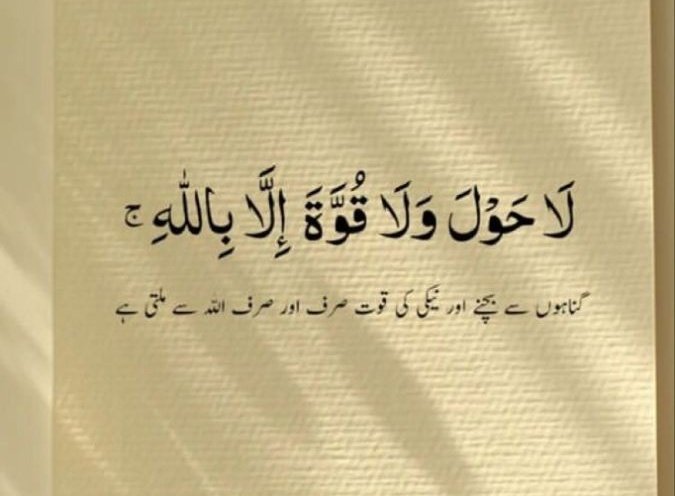 لَا حَوْلَ وَلَا قُوَّةَ إِلَّا بِاللّٰهِ ۚ
گناہوں سے بچنے اور نیکی کی قوت صرف اور صرف اللہ سے ملتی ہے